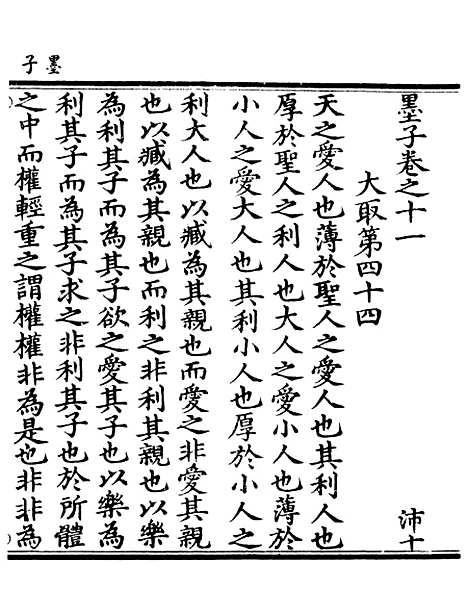 墨子
墨子卷之十一 沛十
大取第四十四
天之愛人也薄於聖人之愛人也其利人也
厚於聖人之利人也大人之愛小人也薄於
小人之愛大人也其利小人也厚於小人之
利大人也以臧為其親也而愛之非愛其親
也以臧為其親也而利之非利其親也以樂
為利其子而為其子欲之愛其子也以樂為
利其子而為其子求之非利其子也於所體
之中而權輕重之謂權權非為是也非非為